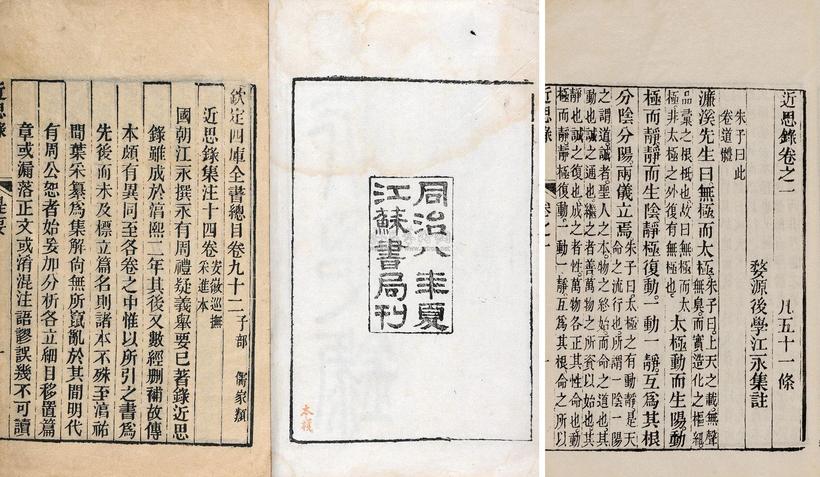 欽定四庫全書總目卷九十二 子部 儒家類
近思錄集注十四卷 安徽巡撫
采進本
國朝江永撰永有周禮疑義舉要已著錄近思
錄雖成於淳熙二年其後又數經刪補故傳
本頗有異同至各卷之中惟以所引之書爲
先後而未及標立篇名則諸本不殊至淳祐
間葉采纂爲集解尚無所竄亂於其間明代
有周公恕者始妄加分析各立細目移置篇
章或漏落正文或淆混注語謬誤幾不可讀
近思錄 提要 一
同治八年夏
江蘇書局刊
近思錄卷之一 凡五十一條
婺源後學江永集註
朱子曰此
卷道體
濂溪先生曰無極而太極 朱子曰上天之載無聲
無臭而實造化之樞紐
品彙之根柢也故曰無極而太
極非太極之外復有無極也 太極動而生陽動
極而靜靜而生陰靜極復動一動一靜互爲其根
分陰分陽兩儀立焉 朱子曰太極之有動靜是天
命之流行也所謂一陰一陽
之謂道誠者聖人之本物之終始而命之道也其
動也誠之通也繼之者善萬物之所資以始也其
靜也誠之復也成之者性萬物各正其性命也動
極而靜靜極復動一動一靜互爲其根命之所以
近思錄 卷之一 一